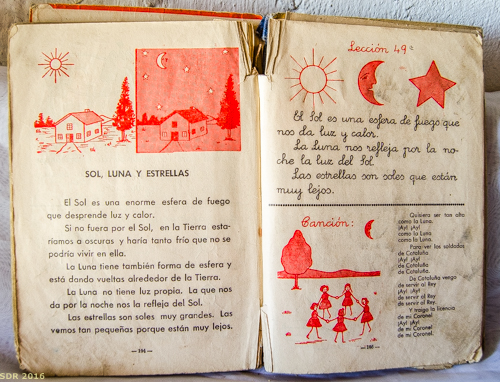 SOL, LUNA Y ESTRELLAS
El Sol es una enorme esfera de fuego
que desprende luz y calor.
Si no fuera por el Sol, en la Tierra esta-
ríamos a oscuras y haría tanto frío que no se
podría vivir en ella.
La Luna tiene también forma de esfera y
está dando vueltas alrededor de la Tierra.
La Luna no tiene luz propia. La que nos
da por la noche nos la refleja del Sol.
Las estrellas son soles muy grandes. Las
vemos tan pequeñas porque están muy lejos.
— 194 —
Lección 49ª
El Sol es una esfera de fuego que
nos da luz y calor.
La Luna nos refleja por la no-
che la luz del Sol.
Las estrellas son soles que están
muy lejos.
Canción:
Quisiera ser tan alto
como la Luna.
¡Ay! ¡Ay!
como la Luna
como la Luna.
Para ver los soldados
de Cataluña
¡Ay! ¡Ay!
de Cataluña
de Cataluña.
De Cataluña vengo
de servir al Rey
¡Ay! ¡Ay!
de servir al Rey
de servir al Rey.
Y traigo la licencia
de mi Coronel
¡Ay! ¡Ay!
de mi Coronel
de mi Coronel.
— 195 —
SDR 2016